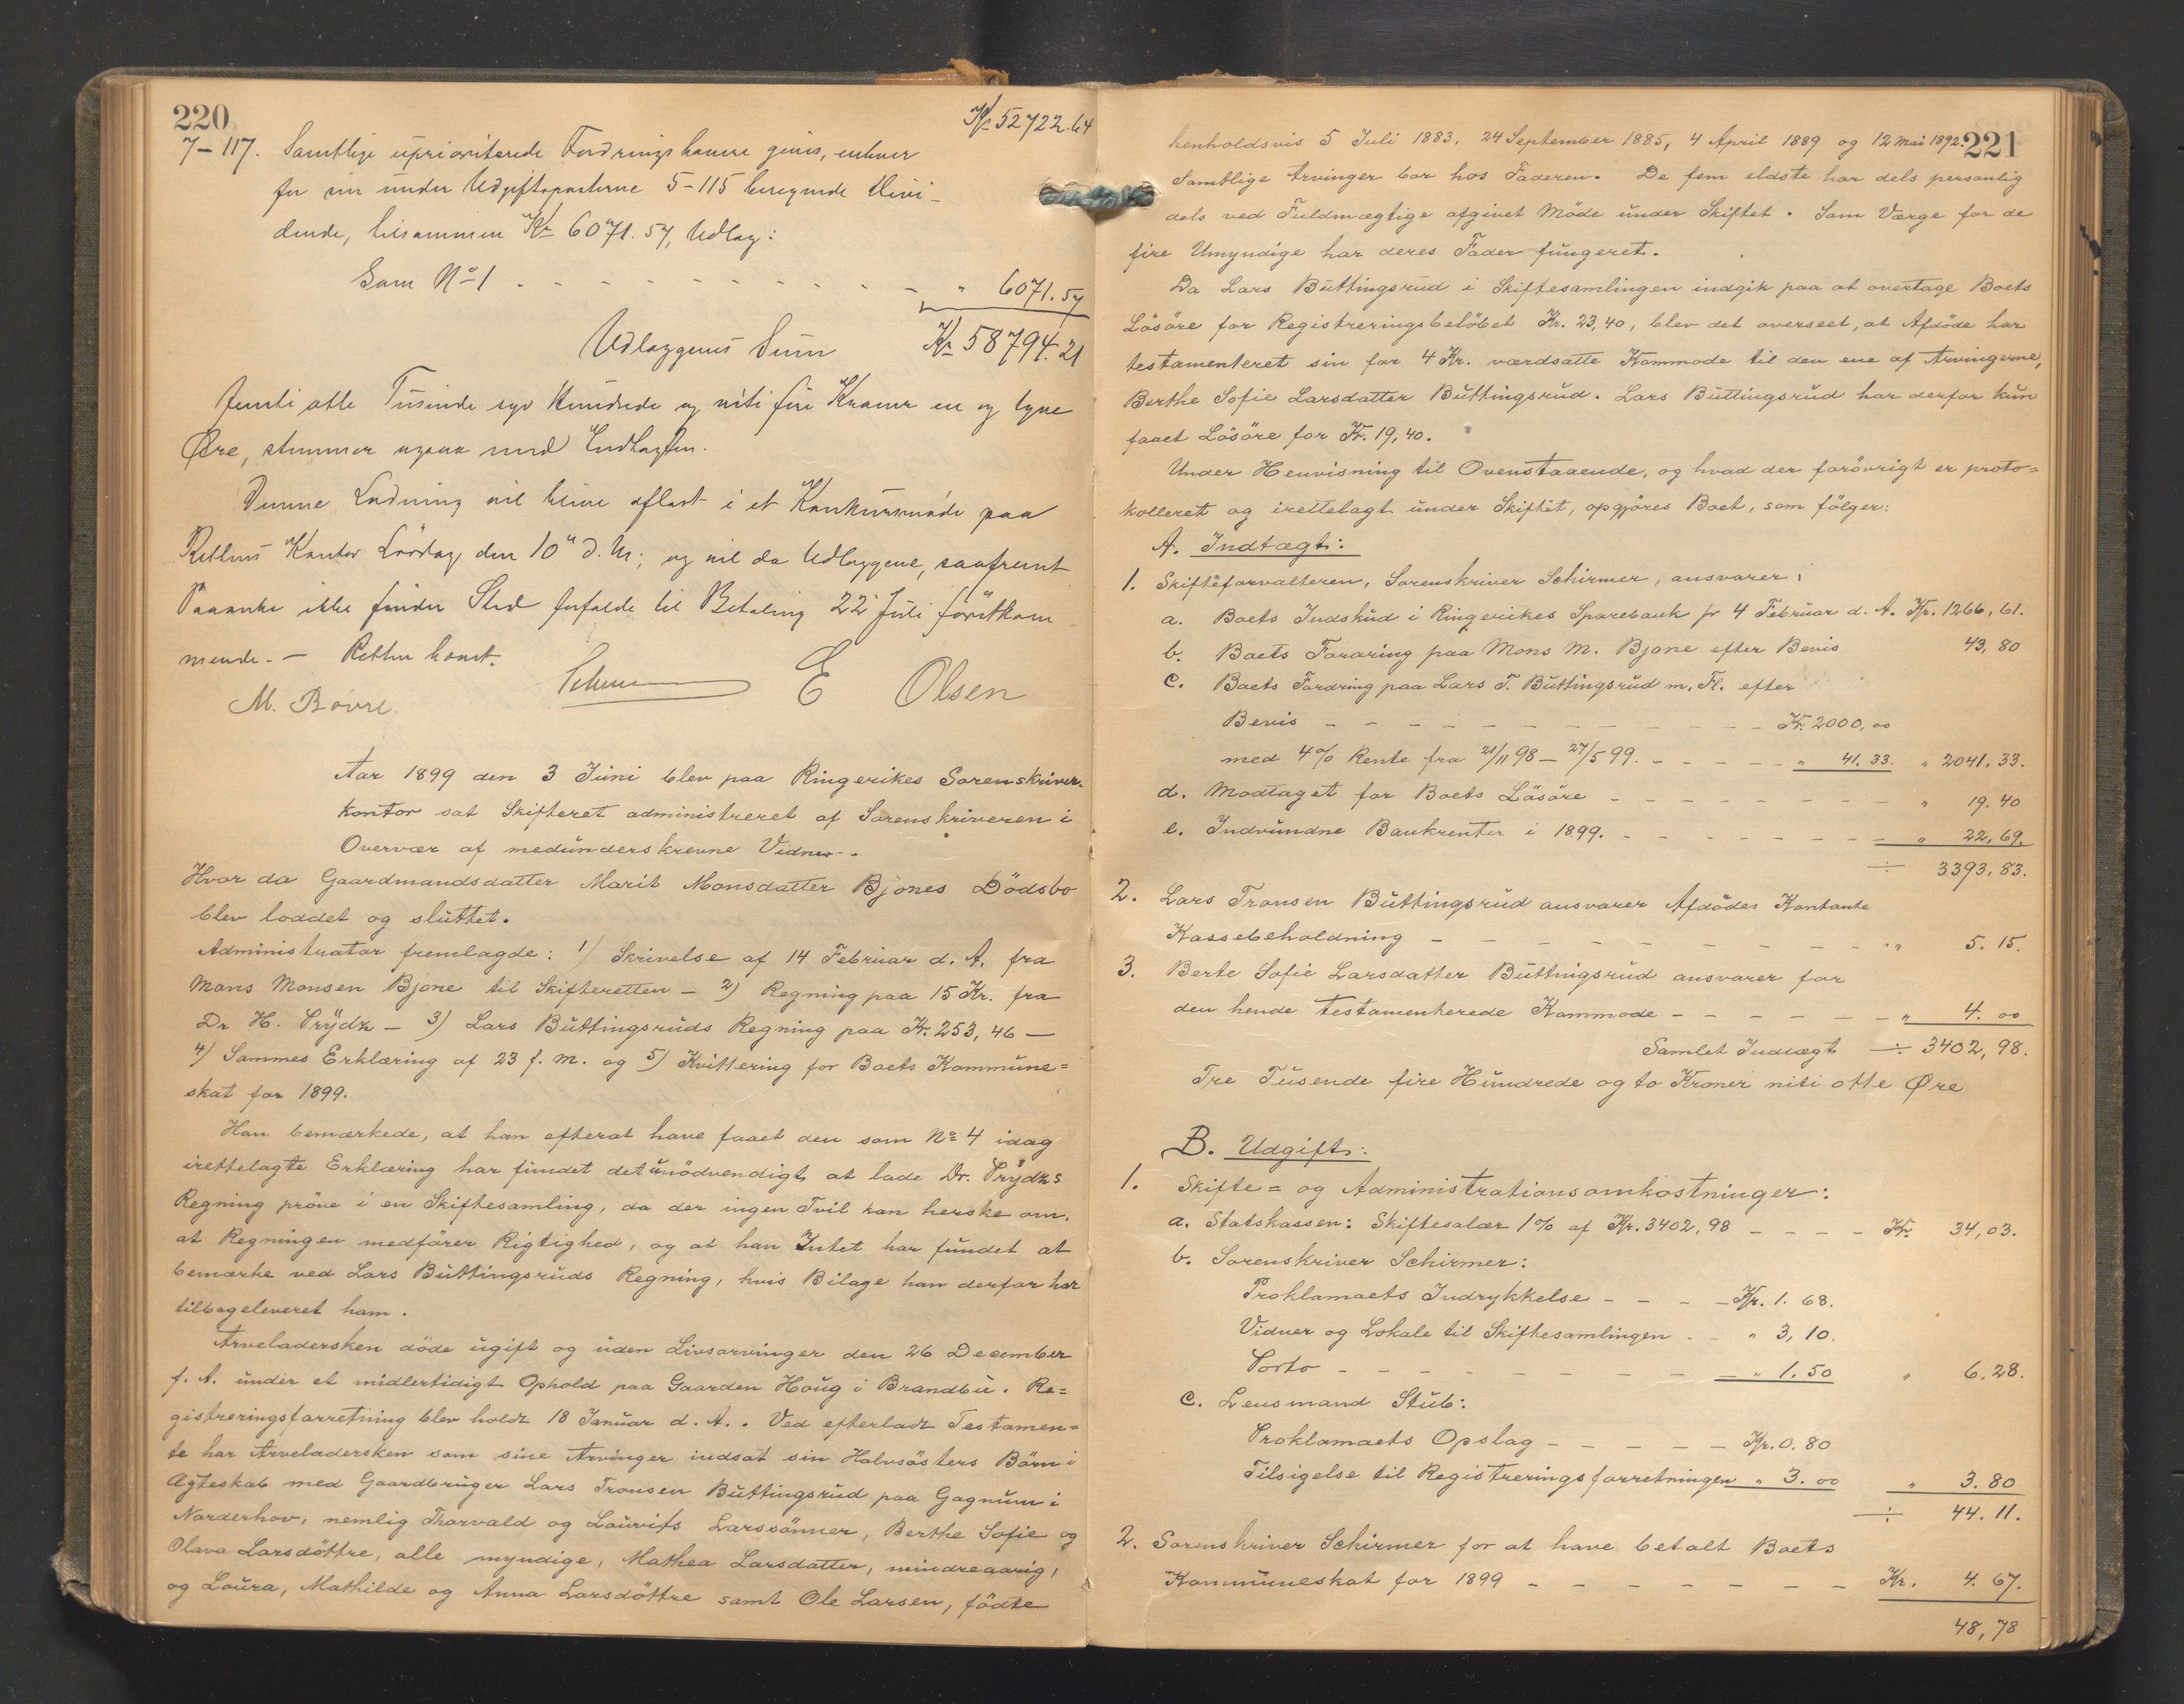 220
Kr 52722.64
7-117. Samtlige uprioriterede Fordringshavere gives, enhver
for sin under Udgiftsposterne 5-115 beregnede Divi-
dende, tilsammen Kr 6071.57, Udlæg:
Som No 1 - - - - - - - - - - " 6071.57
Udlæggenes Sum Kr 58794.21
femti otte Tusinde syv Hundrede og niti fire Kroner en og tyve
Øre, stemmer ogsaa med Indtægten.
Denne Lodning vil blive aflæst i et Konkursmøde paa
Rettens Kontor Lördag den 10de d. M.; og vil da Udlæggene, saafremt
Paaanke ikke finder Sted forfalde til Betaling 22 Juli förstkom
mende. - Retten hævet.
Schirmer E Olsen
M. Bovre.
Aar 1899 den 3 Juni blev paa Ringerikes Sorenskriver-
kontor sat Skifteret administreret af Sorenskriveren i
Overvær af medunderskrevne Vidner.
Hvor da Gaardmandsdatter Marit Monsdatter Bjones Dödsbo
blev loddet og sluttet.
Administrator fremlagde: 1) Skrivelse af 14 Februar d. A. fra
Mons Monsen Bjone til Skifteretten - 2) Regning paa 15 Kr. fra
Dr H. Prÿdz - 3) Lars Büttingsruds Regning paa Kr. 253,46 -
4) Sammes Erklæring af 23 f. M. og 5) Kvittering for Boets Kommune=
skat for 1899.
Han bemærkede, at han efterat have faaet den som No 4 idag
irettelagte Erklæring har fundet det unödvendigt at lade Dr. Prÿdzs
Regning pröve i en Skiftesamling, da der ingen Tvil kan herske om,
at Regningen medförer Rigtighed, og at han Intet har fundet at
bemærke ved Lars Büttingsruds Regning, hvis Bilage han derfor har
tilbageleveret ham.
Arveladersken döde ugift og uden Livsarvinger den 26 December
f. A. under et midlertidigt Ophold paa Gaarden Houg i Brandbu. Re=
gistreringsforretning blev holdt 18 Januar d. A.. Ved efterladt Testamen=
te har Arveladersken som sine Arvinger indsat sin Halvsösters Börn i
Ægteskab med Gaardbruger Lars Tronsen Büttingsrud paa Gagnum i
Norderhov, nemlig Thorvald og Lauritz Larssönner, Berthe Sofie og
Olava Larsdöttre, alle myndige, Mathea Larsdatter, mindreaarig,
og Loura, Mathilde og Anna Larsdöttre samt Ole Larsen, födte
221
henholdsvis 5 Juli 1883, 24 September 1885, 4 April 1889 og 12 Mai 1892.
Samtlige Arvinger bor hos Faderen. De fem eldste har dels personlig
dels ved Fuldmægtige afgivet Möde under Skiftet. Som Værge for de
fire Umyndige har deres Fader fungeret.
Da Lars Büttingsrud i Skiftesamlingen indgik paa at overtage Boets
Lösöre for Registreringsbelöbet Kr. 23,40, blev det overseet, at Afdöde har
testamenteret sin for 4 Kr. værdsatte Kommode til den ene af Arvingerne,
Berthe Sofie Larsdatter Büttingsrud. Lars Büttingsrud har derfor kun
faaet Lösöre for Kr. 19,40.
Under Henvisning til Ovenstaaende, og hvad der forövrigt er proto=
kolleret og irettelagt under Skiftet, opgjöres Boet, som fölger:
A. Indtægt:
1. Skifteforvalteren, Sorenskriver Schirmer, ansvarer:
a. Boets Indskud i Ringerikes Sparebank pr 4 Februar d. A. Kr. 1266,61.
b. Boets Fordring paa Mons M. Bjone efter Bevis 43,80
c. Boets Fordring paa Lars T. Büttingsrud m. Fl. efter
Bevis - - - - - - - - - - Kr. 2000,00
med 4% Rente fra 21/11 98 - 27/5 99. - - - - - " 41.33. " 2041.33.
d. Modtaget for Boets Lösöre - - - - - - - " 19.40
e. Indvundne Bankrenter i 1899. - - - - - - - " 22,69.
÷ 3393,83.
2. Lars Tronsen Büttingsrud ansvarer Afdödes Kontante
Kassebeholdning - - - - - - - - - - " 5.15.
3. Berte Sofie Larsdatter Büttingsrud ansvarer for
den hende testamenterede Kommode - - - - - - " 4.00
Samlet Indtægt ÷ 3402,98.
Tre Tusende fire Hundrede og to Kroner niti otte Øre
B. Udgift:
1. Skifte= og Administrationsomkostninger:
a. Statskassen: Skiftesalær 1% af Kr. 3402,98 - - - - Kr. 34,03.
b. Sorenskriver Schirmer:
Proklamaets Indrykkelse - - - - Kr. 1.68.
Vidner og Lokale til Skiftesamlingen - - " 3,10.
Porto - - - - - - - - " 1.50 " 6.28.
c. Lensmand Stub:
Proklamaets Opslag - - - - - Kr. 0.80
Tilsigelse til Registreringsforretningen " 3.00 " 3.80
÷ 44.11.
2. Sorenskriver Schirmer for at have betalt Boets
Kommuneskat for 1899 - - - - - - - Kr. 4.67.
48,78